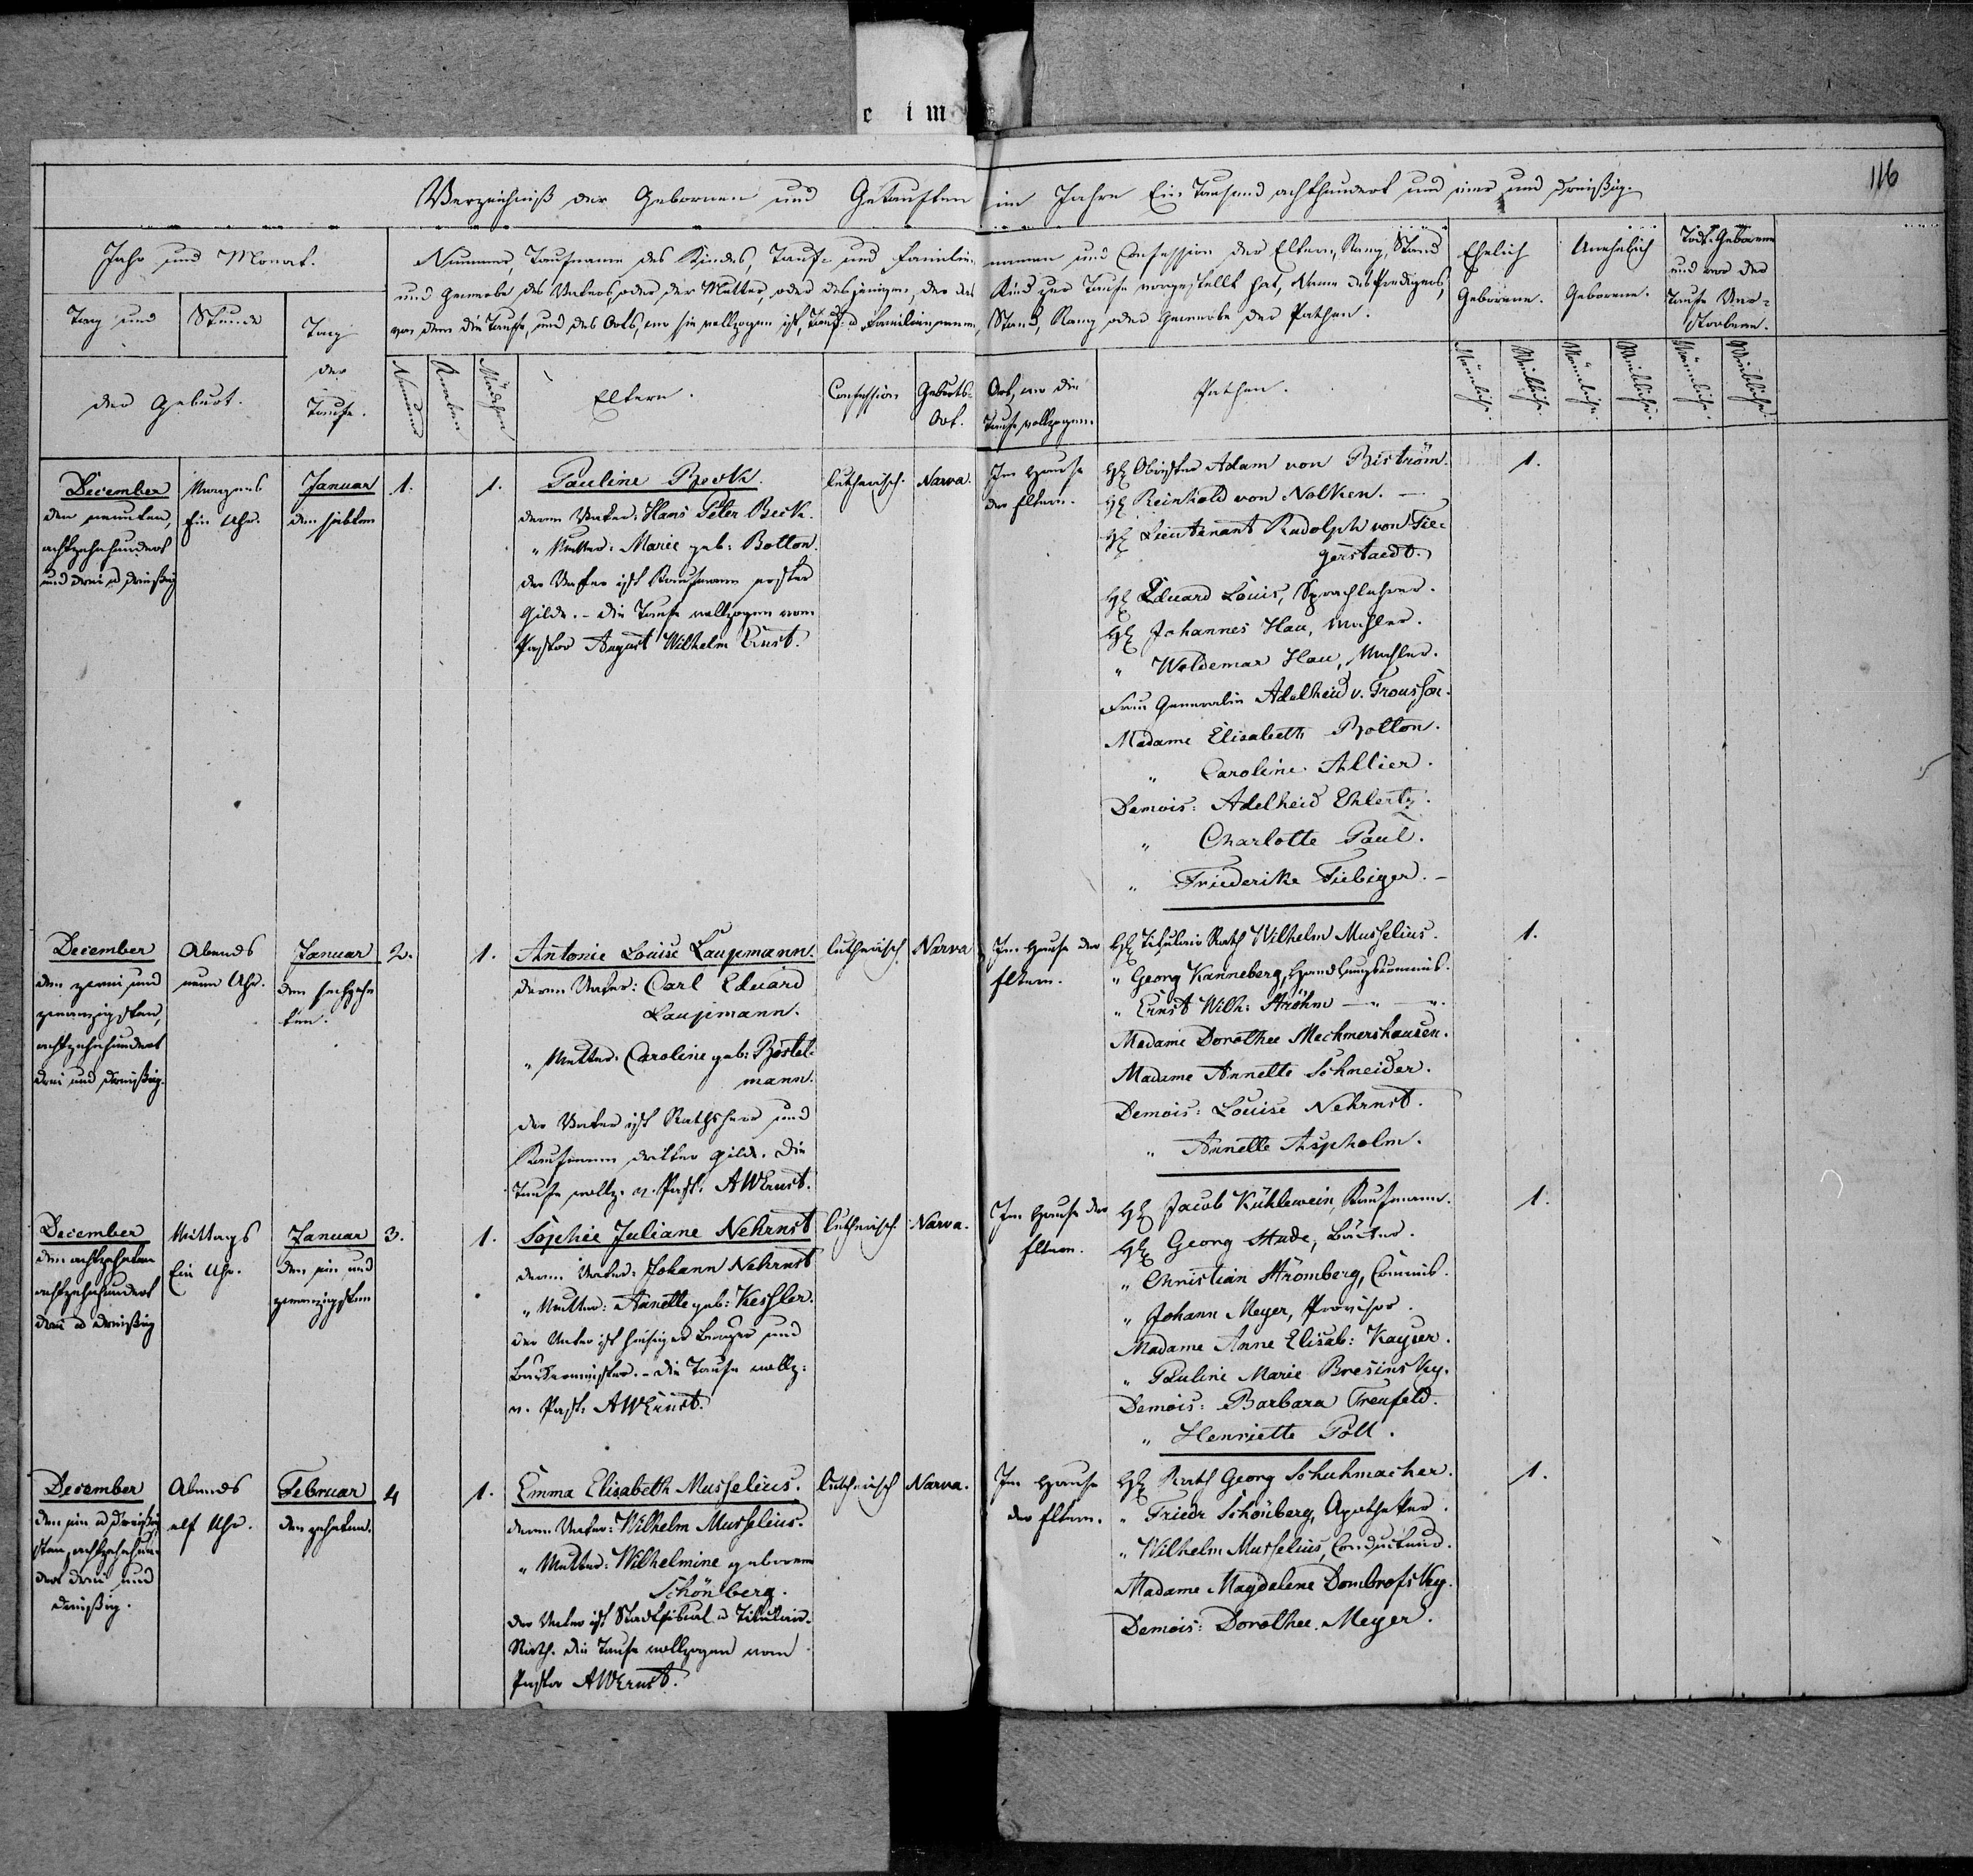 e im
116
Verzeichniß der Gebornen und Getauften im Jahre Ein Tausend achthundert und vier und dreißig.
Jahr und Monat.
Tag und
Stunde
der Geburt.
Tag
der
Taufe.
Nummer, Taufname des Kindes, Tauf- und Familien-
namen und Confession der Eltern, Rang, Stand
und Gewerbe des Vaters, oder der Mutter, oder desjenigen, der das
Kind zur Taufe vorgestellt hat, Name des Predigers,
von dem die Taufe, und des Orts, wo sie vollzogen ist, Tauf- u Familiennamen,
Stand, Rang oder Gewerbe der Pathen.
Nummer
Knaben
Mädchen
Eltern.
Confession
Geburts-
Ort.
Ort, wo die
Taufe vollzogen.
Pathen.
Ehelich
Geborene.
Unehelich
Geborene.
Todt-Geborene
und vor der
Taufe Ver-
storbene.
Männliche.
Weibliche.
Männliche.
Weibliche.
Männliche.
Weibliche.
December
den neunten,
achtzehnhundert
und drei u dreißig
Morgens
Ein Uhr.
Januar
den siebten
1.
1.
Pauline Beck.
deren Vater: Hans Peter Beck.
" Mutter: Marie geb: Botton.
der Vater ist Kaufmann erster
Gilde. - die Taufe vollzogen vom
Pastor August Wilhelm Ernst.
lutherisch.
Narva.
Im Hause
der Eltern.
H Obrister Adam von Biström.
H Reinhold von Nolken. —
H Lieutenant Rudolph von Fie-
gerstaedt.
H Eduard Louis, Sprachlehrer.
H Johannes Hau, Mahler.
" Woldemar Hau, Mahler.
Frau Generalin Adelheid v. Trousson.
Madame Elisabeth Botton.
" Caroline Allier.
Demois: Adelheid Ehlertz.
" Charlotte Paul.
" Friederike Fiebiger. -
1.
December
den zwei und
zwanzigsten,
achtzehnhundert
drei und dreißig.
Abends
neun Uhr.
Januar
den sechzehn
ten.
2.
1.
Antonie Louise Laupmann.
deren Vater: Carl Eduard
Laupmann.
" Mutter: Caroline geb: Bostel-
mann.
der Vater ist Rathsherr und
Kaufmann dritter Gilde. Die
Taufe vollz. v. Past. AWErnst.
lutherisch
Narva
Im Hause der
Eltern.
H Titulair Rath Wilhelm Musselius.
" Georg Kanneberg, Handlungscommis.
" Ernst Wilh: Ströhm — " — "
Madame Dorothee Mechmershausen.
Madame Annette Schneider.
Demois: Louise Nehrnst.
" Annette Aspholm.
1.
December
den achtzehnten
achtzehnhundert
drei u dreißig
Mittags
Ein Uhr.
Januar
den ein und
zwanzigsten
3.
1.
Sophie Juliane Nehrnst
deren Vater: Johann Nehrnst
" Mutter: Annette geb: Kessler.
der Vater ist hiesiger Bürger und
Bäckermeister. - die Taufe vollz:
v. Past: AWErnst.
lutherisch
Narva.
Im Hause der
Eltern.
H Jacob Kühlewein, Kaufmann.
H Georg Stude, Bäcker.
" Christian Strömberg, Commis.
" Johann Meyer, Provisor.
Madame Anne Elisab: Kayser.
" Pauline Marie Bresinsky.
Demois: Barbara Treufeld.
" Henriette Poll.
1.
December
den ein u dreißig
sten, achtzehnhun-
dert drei und
dreißig.
Abends
elf Uhr.
Februar
den zehnten.
4
1.
Emma Elisabeth Musselius.
deren Vater: Wilhelm Musselius.
" Mutter: Wilhelmine geborene
Schönberg.
der Vater ist Stadtfiskal u Titulair-
Rath. die Taufe vollzogen vom
Pastor AWErnst.
lutherisch
Narva.
Im Hause
der Eltern.
H Rath Georg Schuhmacher.
" Friedr Schönberg, Apotheker.
" Wilhelm Musselius, Conducteur.
Madame Magdalene Dombrofsky.
Demois: Dorothee Meyer.
1.